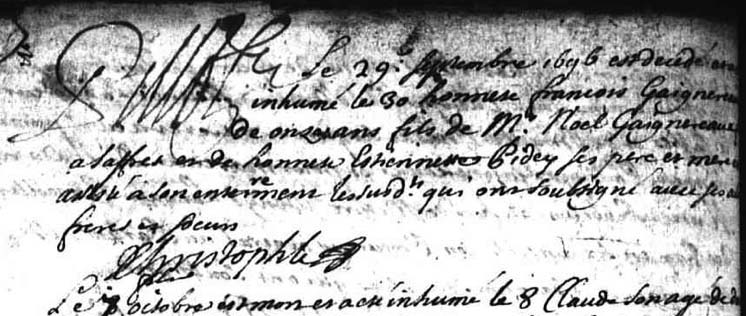 Le 29e septembre 1696 est decedé et
inhumé le 30 honneste françois Gaignereau
de onze ans fils de Mr. Noel Gaignereaux
et de honneste Estiennette Pidey ses pere et mere
a son enterrement les susdts qui ont soubsigné avec ses
freres et soeurs
Christophle
Le 7 octobre est mort et a eté inhumé le 8 Claude son agé de